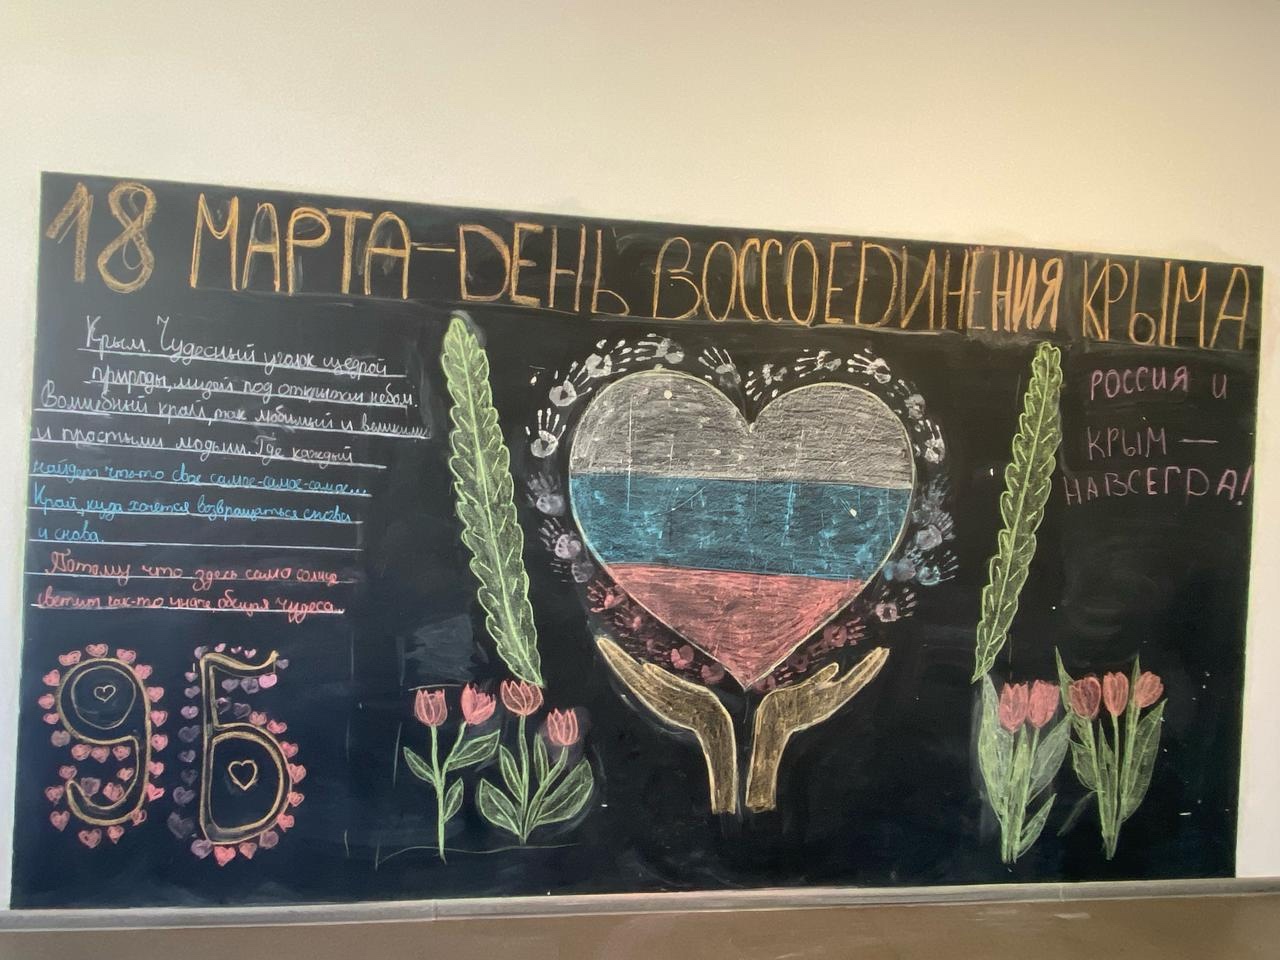 18 МАРТА-ДЕНЬ ВОССОЕДИНЕНИЯ КРЫМА
Крым. Чудесный уголок щедрой
природы, музей под открытым небом.
Волшебный край, так любимый и великими
и простыми людьми. Где каждый
найдет что-то свое самое-самое-самое...
Край, куда хочется возвращаться снова
и снова.
Потому что здесь само солнце
светит как-то иначе, обещая чудеса...
9Б
РОССИЯ И
КРЫМ —
НАВСЕГДА!